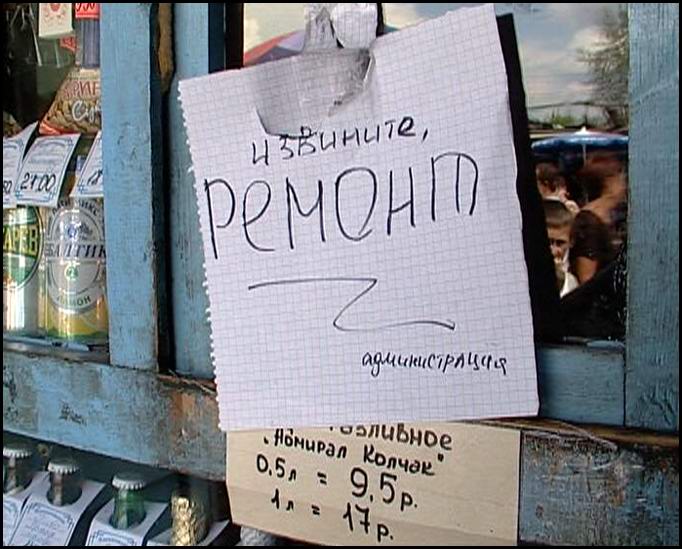 извините,
РЕМОНТ
администрация
Разливное
"Адмирал Колчак"
0,5л = 9,5р.
1л = 17р.
21.00
БАЛТИКА
ЛИМОН